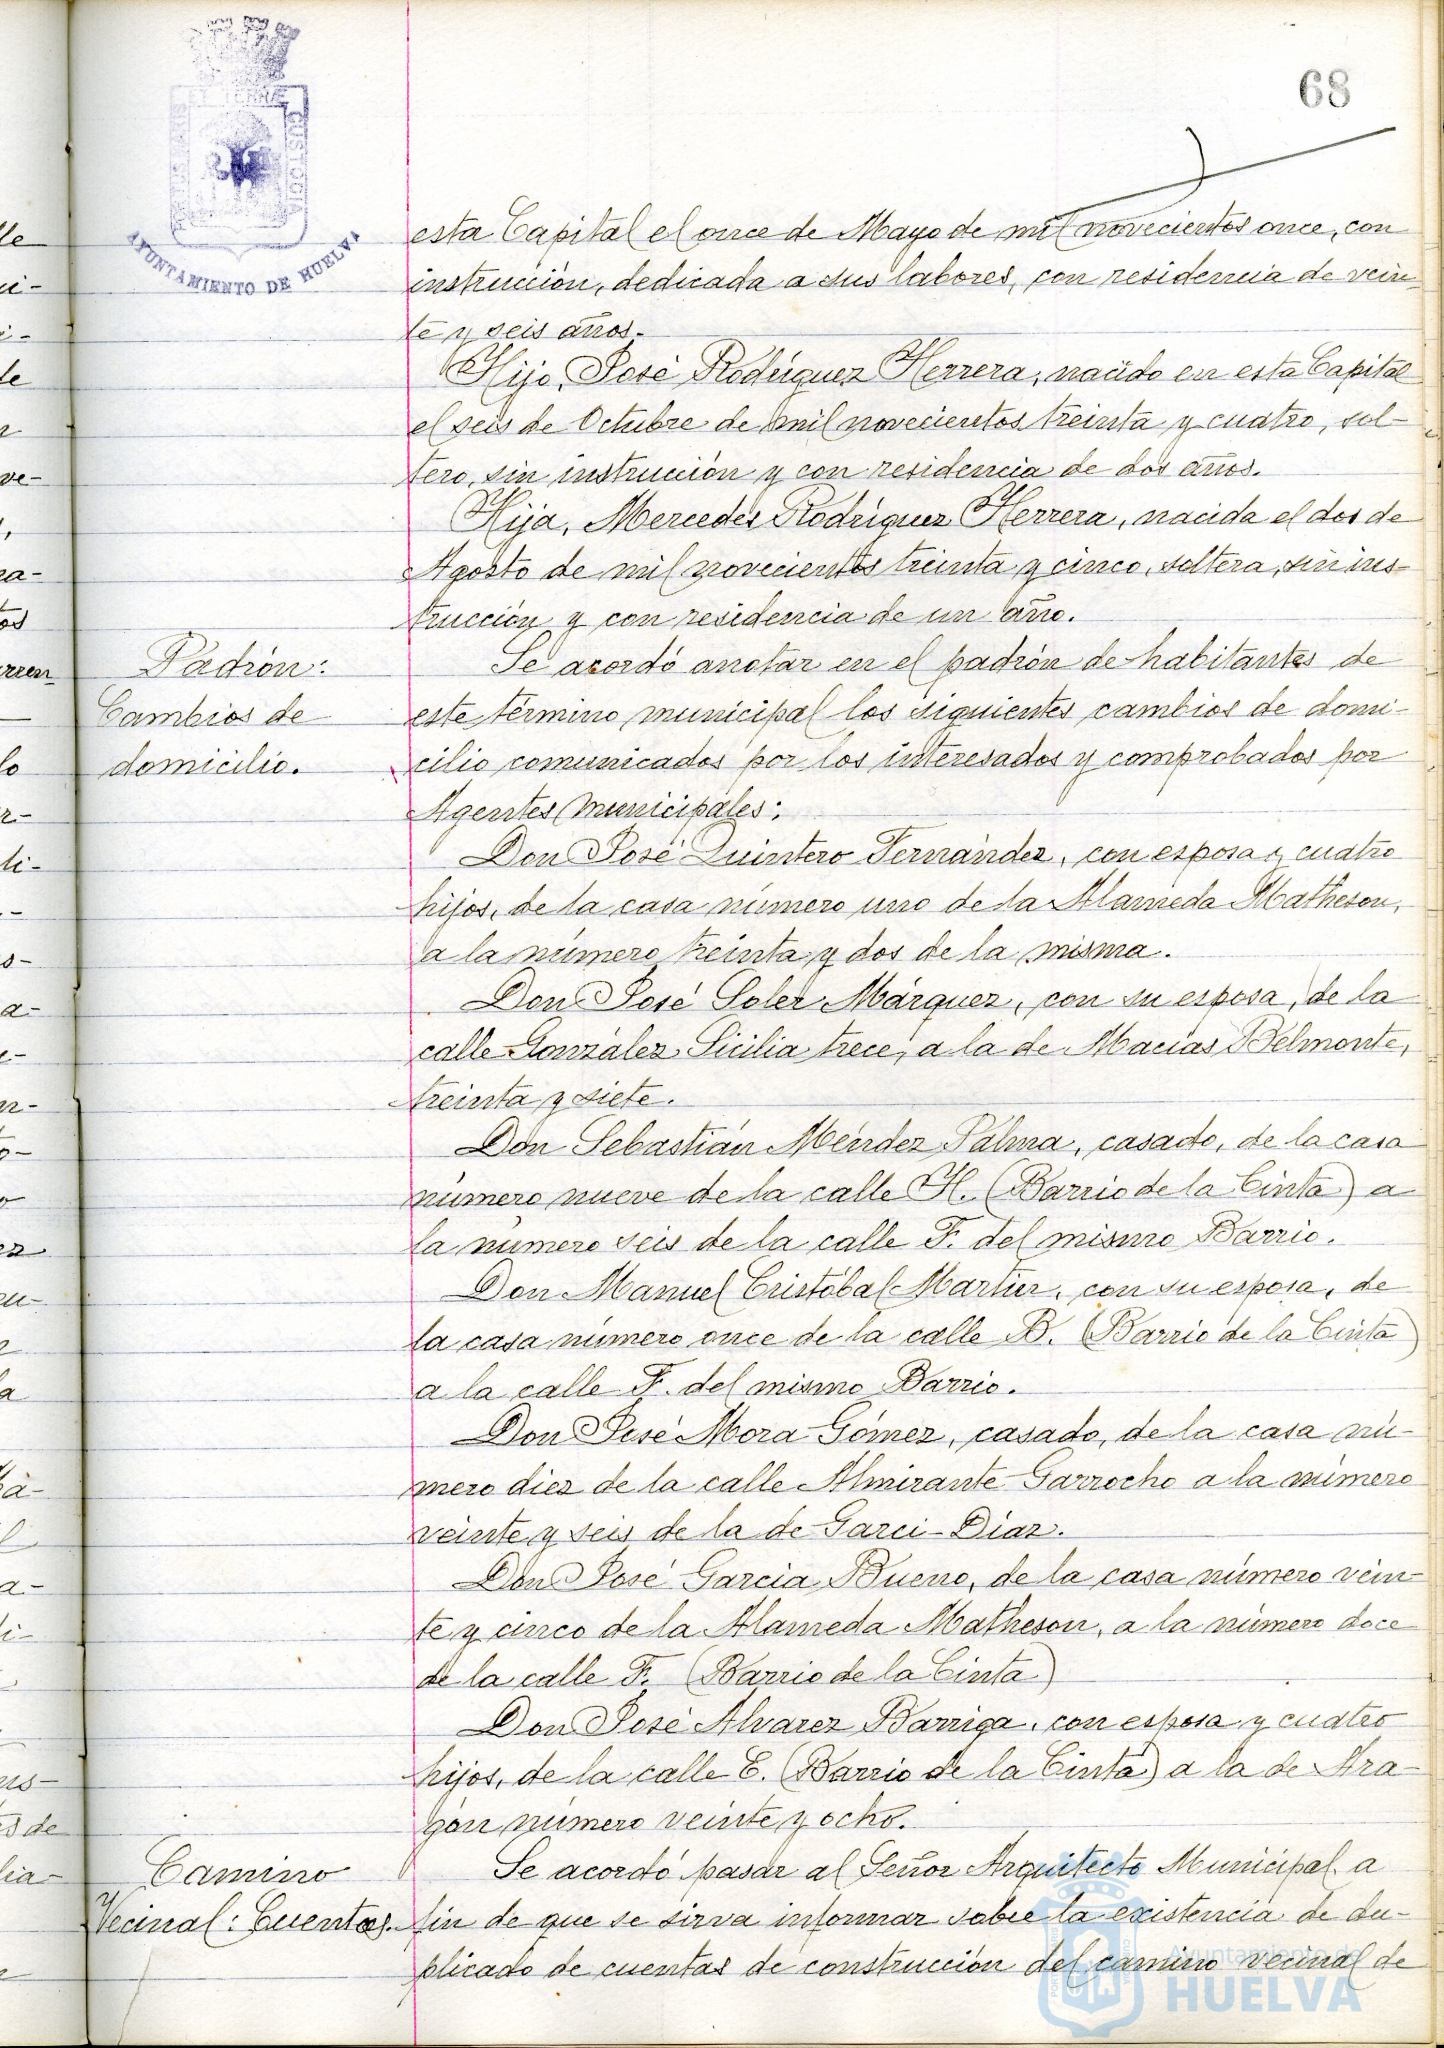 68
PORTUS MARIS ET TERRÆ CUSTODIA
AYUNTAMIENTO DE HUELVA
esta Capital el once de Mayo de mil novecientos once, con
instrucción, dedicada a sus labores, con residencia de vein-
te y seis años.
Hijo, José Rodríguez Herrera, nacido en esta Capital
el seis de Octubre de mil novecientos treinta y cuatro, sol-
tero, sin instrucción y con residencia de dos años.
Hija, Mercedes Rodríguez Herrera, nacida el dos de
Agosto de mil novecientos treinta y cinco, soltera, sin ins-
trucción y con residencia de un año.
Padrón:
Cambios de
domicilio.
Se acordó anotar en el padrón de habitantes de
este término municipal los siguientes cambios de domi-
cilio comunicados por los interesados y comprobados por
Agentes municipales:
Don José Quintero Fernández, con esposa y cuatro
hijos, de la casa número uno de la Alameda Matheson,
a la número treinta y dos de la misma.
Don José Soler Márquez, con su esposa, de la
calle González Sicilia trece, a la de Macías Belmonte,
treinta y siete.
Don Sebastián Méndez Palma, casado, de la casa
número nueve de la calle H. (Barrio de la Cinta) a
la número seis de la calle F. del mismo Barrio.
Don Manuel Cristóbal Martín, con su esposa, de
la casa número once de la calle B. (Barrio de la Cinta)
a la calle F. del mismo Barrio.
Don José Mora Gómez, casado, de la casa nú-
mero diez de la calle Almirante Garrocho a la número
veinte y seis de la de Garci-Díaz.
Don José García Bueno, de la casa número vein-
te y cinco de la Alameda Matheson, a la número doce
de la calle F. (Barrio de la Cinta)
Don José Alvarez Barriga, con esposa y cuatro
hijos, de la calle E. (Barrio de la Cinta) a la de Ara-
gón número veinte y ocho.
Camino
Vecinal: Cuentas.
Se acordó pasar al Señor Arquitecto Municipal a
fin de que se sirva informar sobre la existencia de du-
plicado de cuentas de construcción del camino vecinal de
Ayuntamiento de
HUELVA